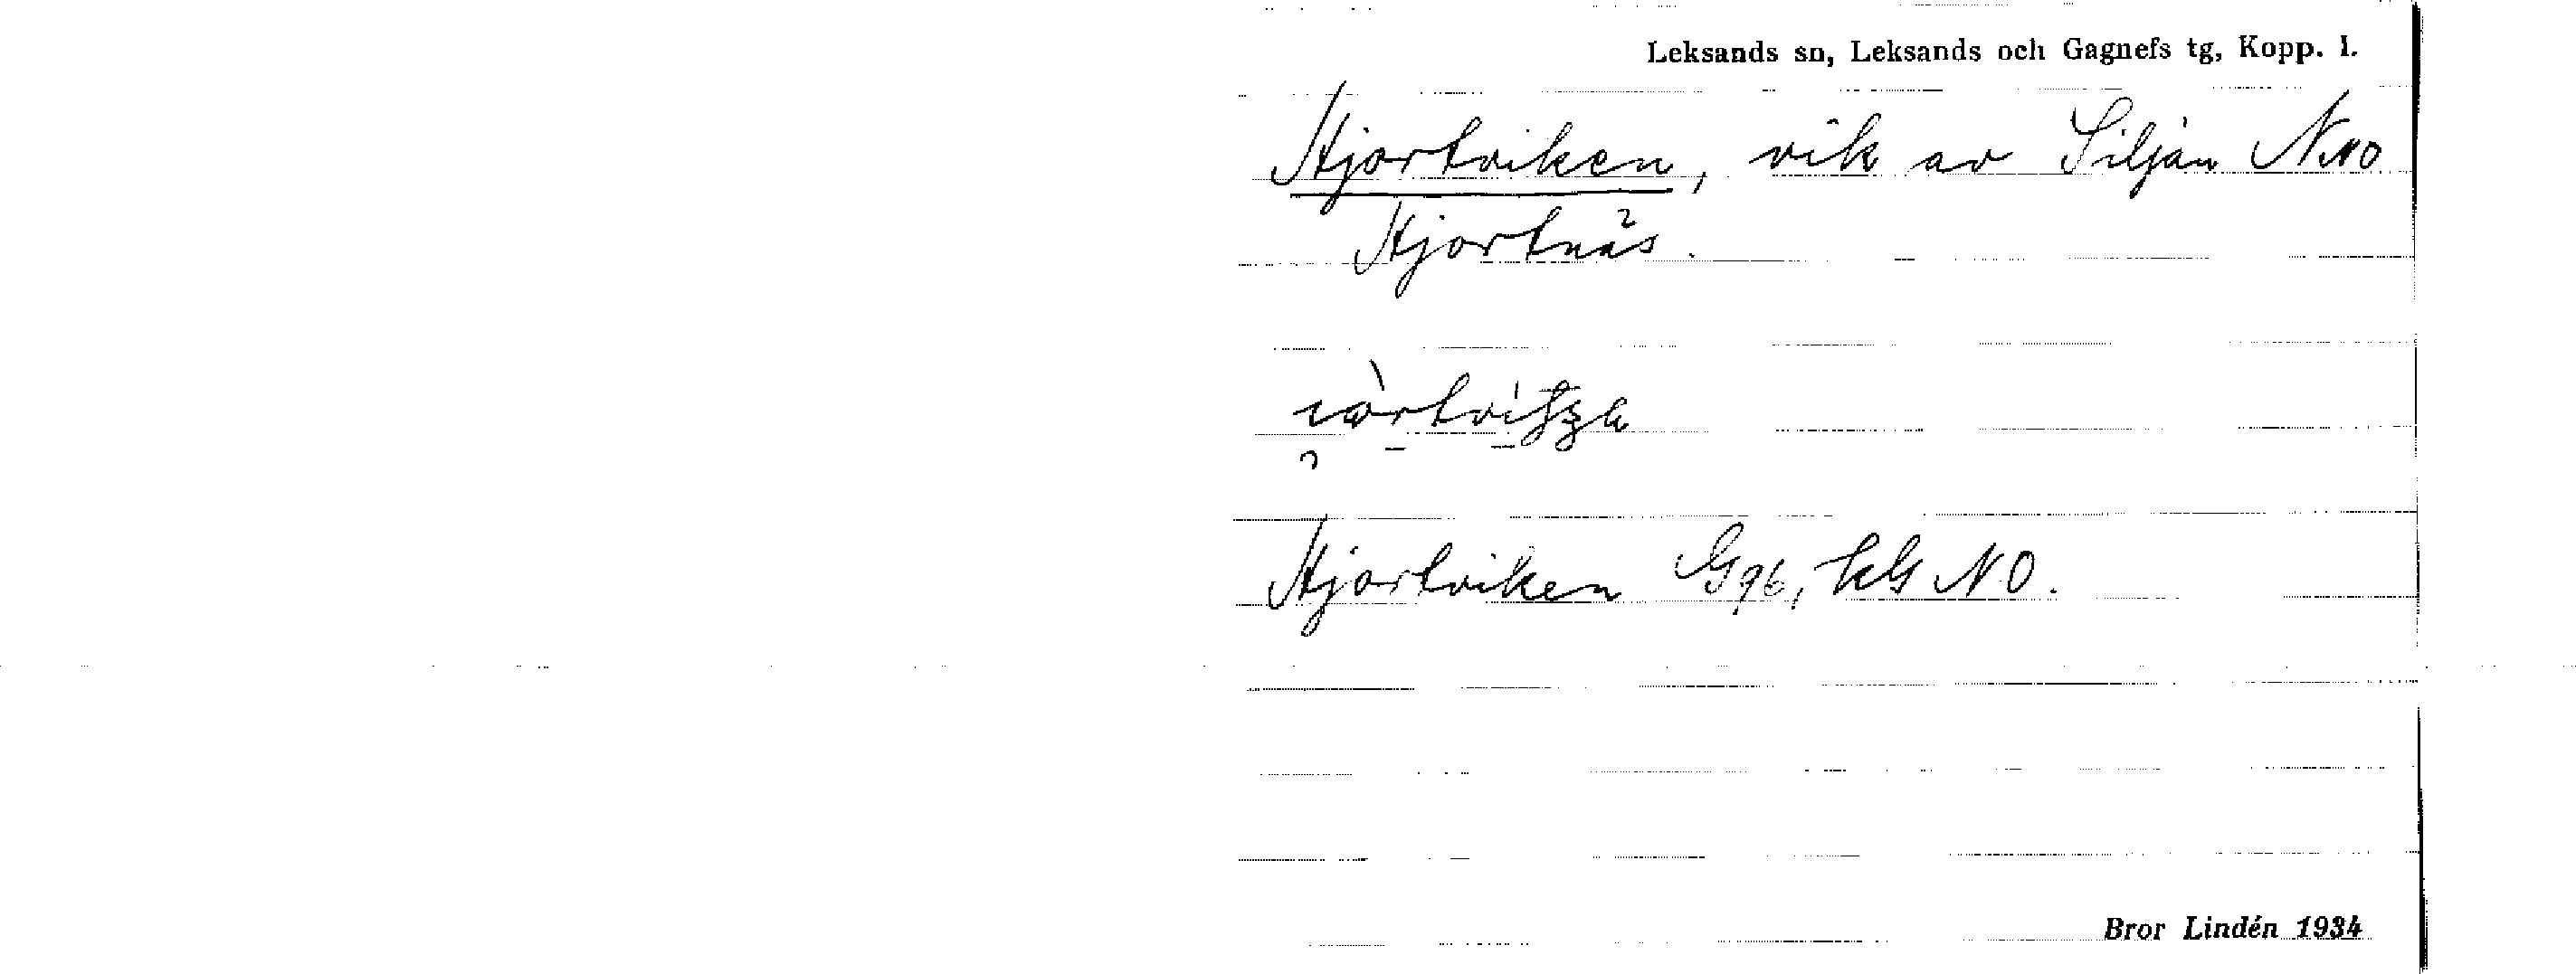 Leksands sn, Leksands och Gagnefs tg, Kopp. l.
Hjortviken, vik av Siljan NNO
Hjortnäs.
Hjortviken G96, hbl NO.
Bror Lindén 1934